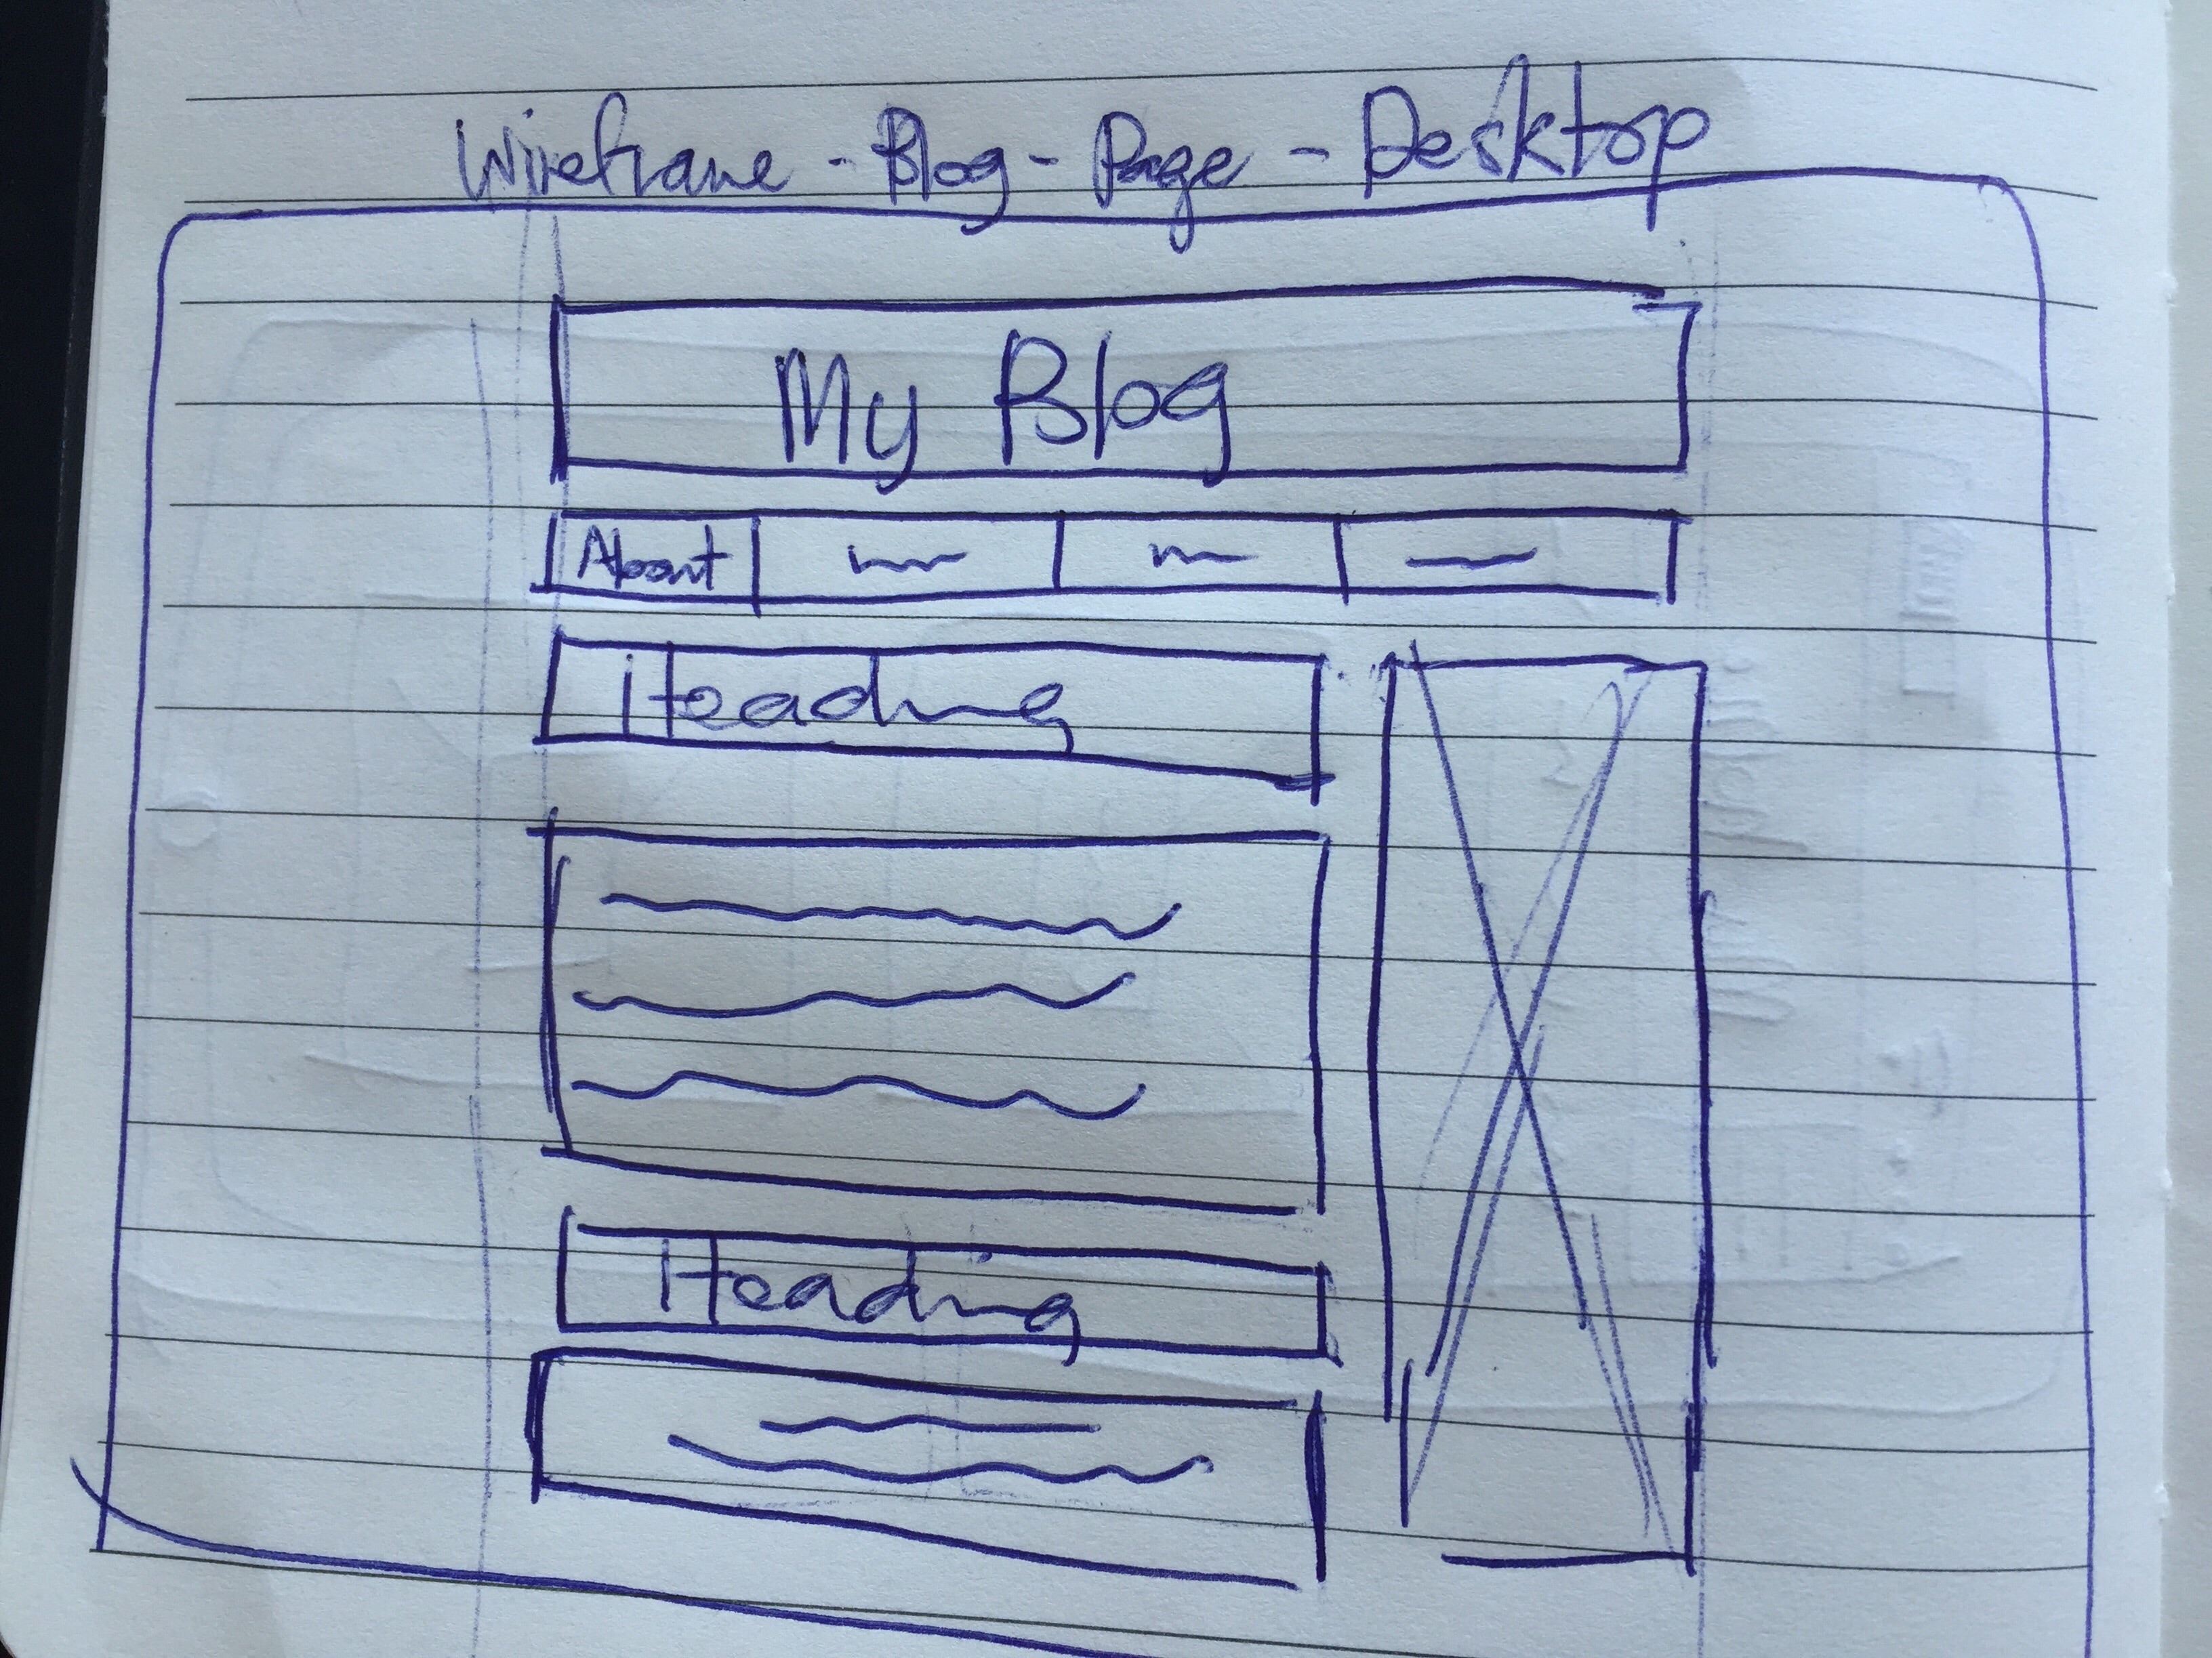 Wireframe - Blog - Page - Desktop
My Blog
About
Heading
Heading